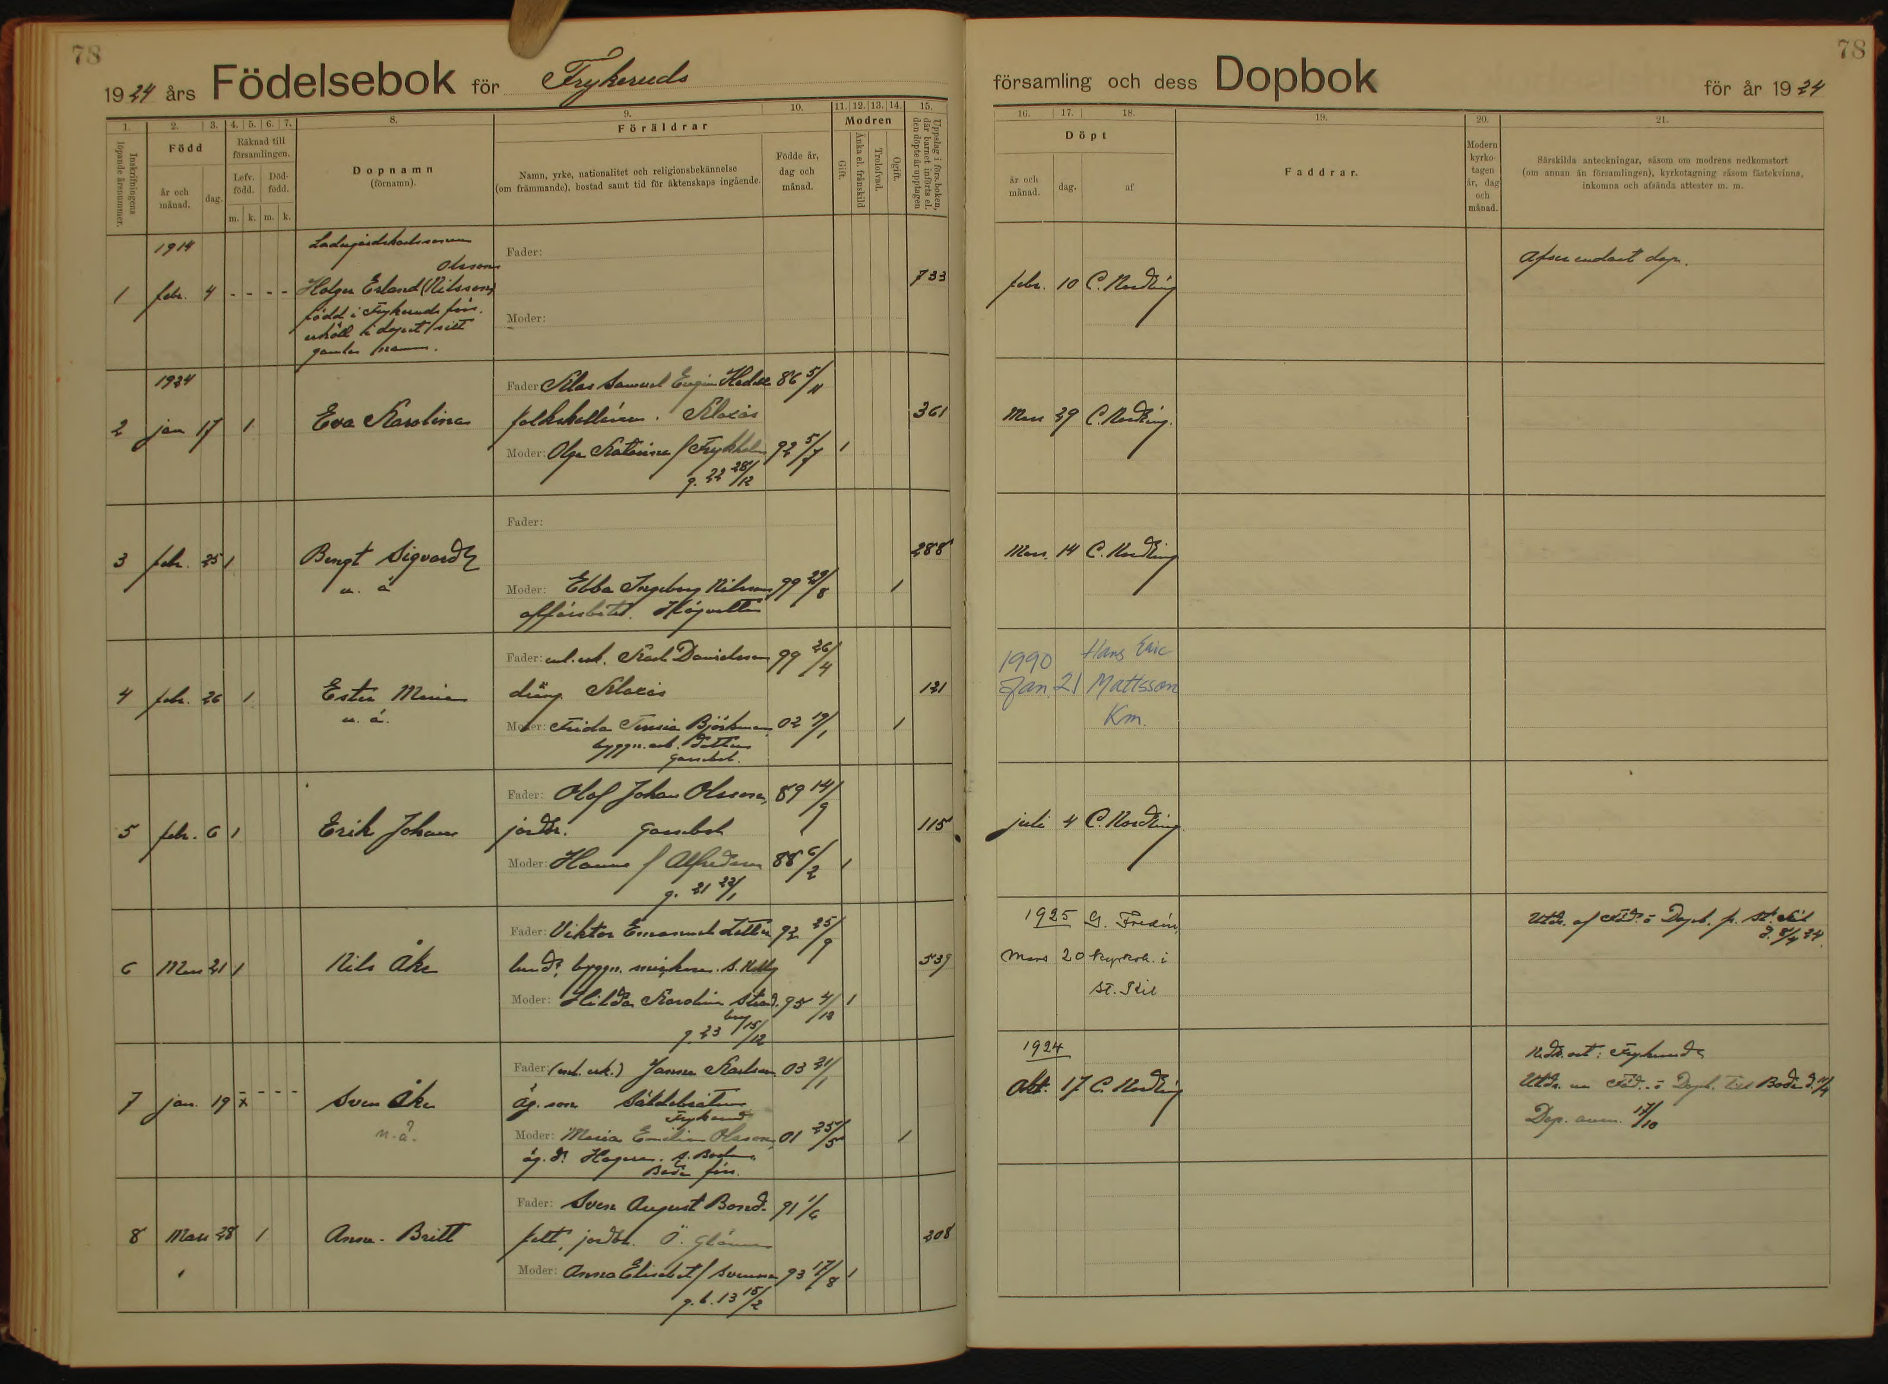 78
1924 års Födelsebok för Frykeruds
1. 2. 3. 4. 5. 6. 7. 8. 9. 10. 11. 12. 13. 14. 15.
Inskrifningens löpande årsnummer.
Född
år och månad.
dag.
Räknad till församlingen.
Lefv. född.
Död-född.
m. k. m. k.
Dopnamn
(förnamn).
Föräldrar
Namn, yrke, nationalitet och religionsbekännelse
(om främmande), bostad samt tid för äktenskaps ingående.
Födde år, dag och månad.
Modren
Gift.
Änka el. frånskild
Trolofvad.
Ogift.
Uppslag i förs.boken, där barnet införts el. den döpte är upptagen
1914
1 febr. 4 - - - -
Olsson
Holger Erland (Nilsson)
född i Frykeruds förs.
erhöll i dopet sitt
gamla namn.
Fader:
Moder:
733
1924
2 jan 17 1
Eva Karolina
Fader: Klas Samuel Eugen 86 5/11
361
Moder: Olga Katarina f Frykholm 92 5/7 1
g. 22 28/12
3 febr. 25 1
Bengt Sigvard
u. ä
Fader:
288
Moder: Ebba Ingeborg Nilsson 99 29/8 1
4 febr. 26 1
Ester Maria
u. ä.
Fader: enl. erk. Karl Danielsson 99 26/4
dräng
121
Moder: Frida Björkman 02 19/1 1
5 febr. 6 1
Erik Johan
Fader: Olof Johan Olsson 89 14/9
jordbr.
115
Moder: Hanna f Alfredsson 88 6/2 1
g. 21 22/1
6 Mars 21 1
Nils Åke
Fader: Viktor Emanuel 92 25/9
539
Moder: Hilda Karolina 95 4/12 1
g. 23 15/12
7 jan. 19 x - - -
Sven Åke
n. ä.
Fader: (enl. erk.) Karlsson 03 21/1
äg. son
Frykerud
Moder: Maria Emilia Olsson 01 25/5 1
Boda förs.
8 Mars 28 1
Anna-Britt
Fader: Sven August 91 1/6
jordbr. Ö.
308
Moder: Anna Elisabet f Svensson 93 17/8 1
g. b. 13 15/2
78
församling och dess Dopbok för år 1924
16. 17. 18. 19. 20. 21.
Döpt
år och månad.
dag.
af
Faddrar.
Modern kyrko-tagen år, dag och månad.
Särskilda anteckningar, såsom om modrens nedkomstort
(om annan än församlingen), kyrkotagning såsom fästekvinna,
inkomna och afsända attester m. m.
febr. 10 C. Nordling
Afser endast dop.
Mars 29 C. Nordling.
Mars 14 C. Nordling
1990
Jan. 21
Hans Eric
Mattsson
Km.
juli 4 C. Nordling
1925
Mars 20
G. Fredin,
kyrkoh. i
St. Kil
Utdr. af Föd. o Dopb. fr. St. Kil
1924
Okt. 17 C. Nordling
Ned. ort: Frykerud
Utdr. ur Föd. o Dopb. till Boda
Dop. anm. 17/10